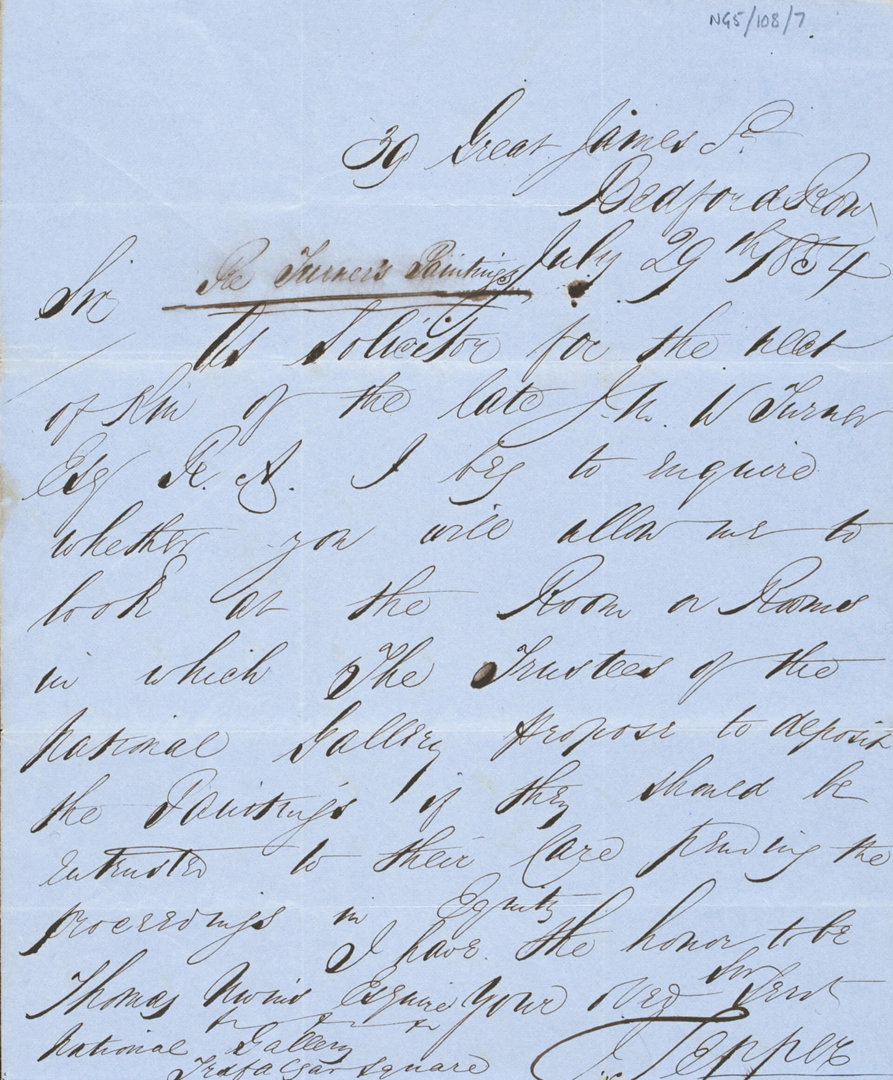 NG5/108/7
39 Great James St
Bedford Row
July 29th 1854
Sir
Re Turner's Paintings
As Solicitor for the next
of Kin of the late J. M. W Turner
Esqr R. A. I beg to enquire
whether you will allow me to
look at the Room or Rooms
in which The Trustees of the
National Gallery propose to deposit
the Paintings if they should be
entrusted to their Care pending the
proceedings in Equity
I have the honor to be
Sir
Thomas Uwins Esquire Your Obed Servt
National Gallery
Trafalgar Square
Tepper